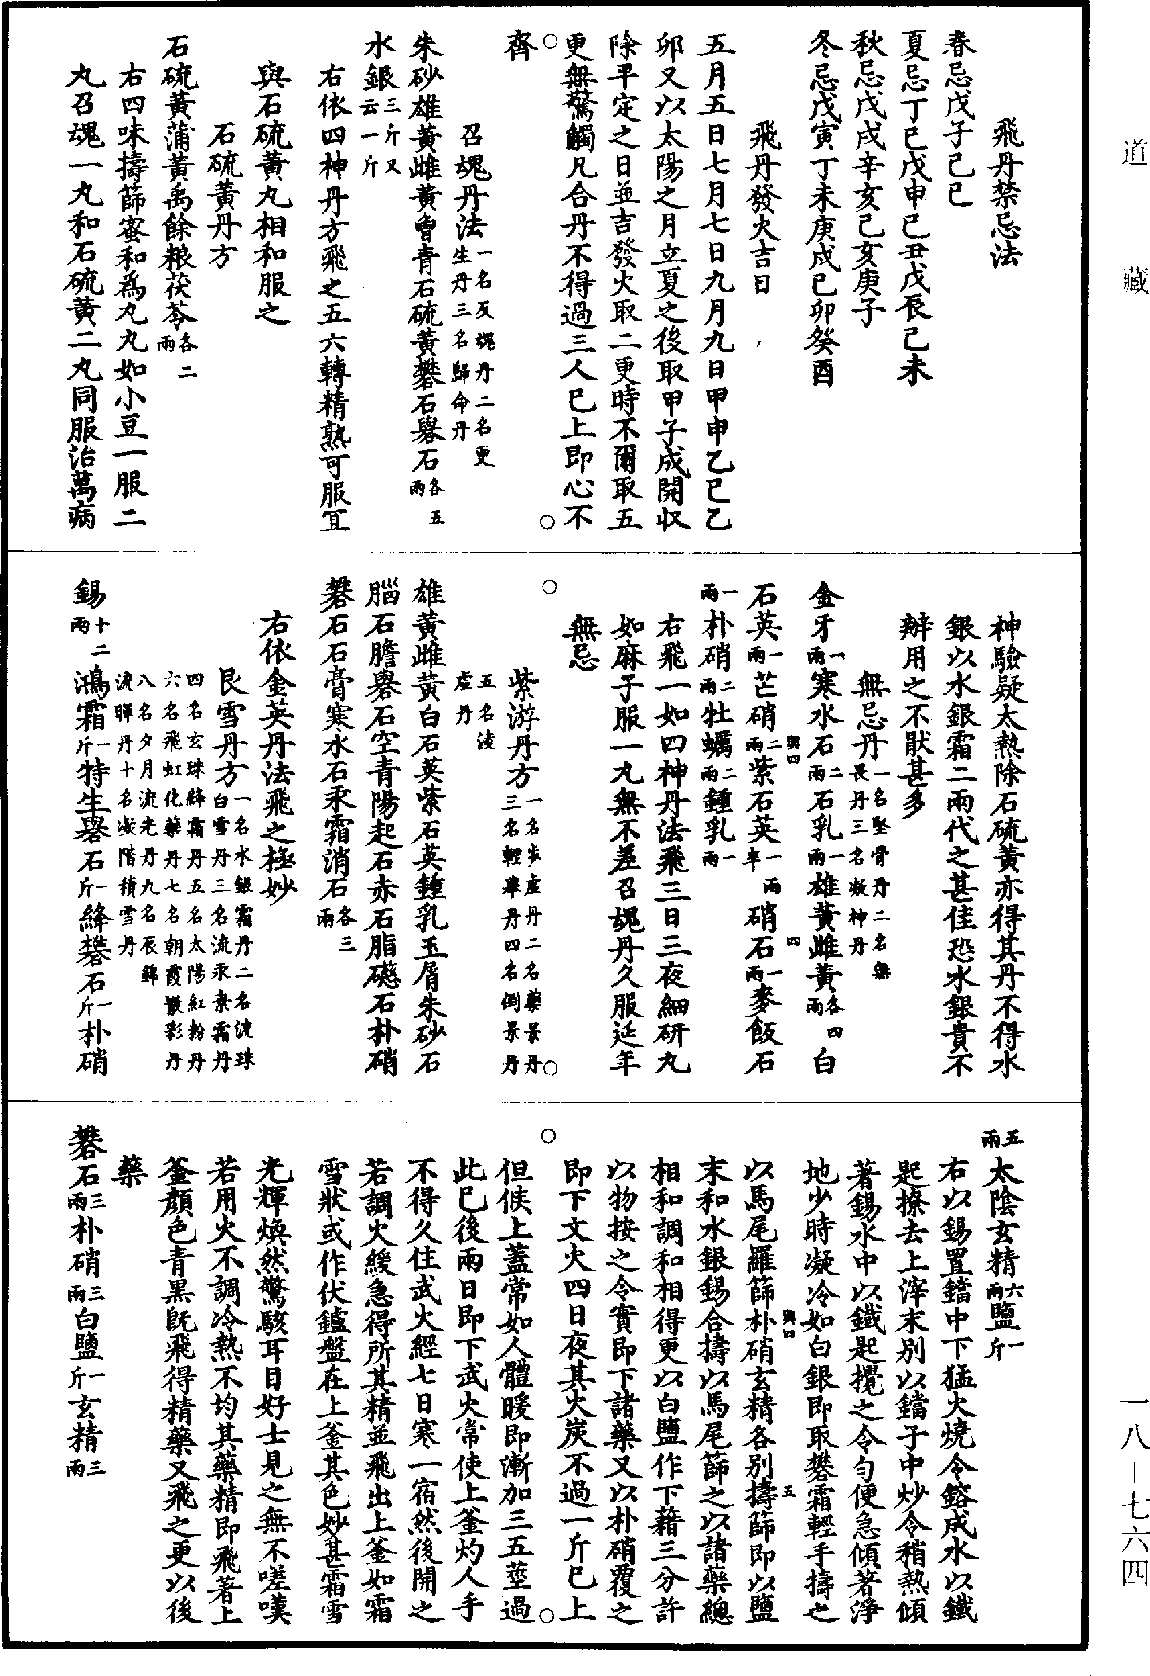 道藏
一八—七六四
飛丹禁忌法
春忌戊子己巳
夏忌丁巳戊申己丑戊辰己未
秋忌戊戌辛亥己亥庚子
冬忌戊寅丁未庚戌己卯癸酉
飛丹發火吉日
五月五日七月七日九月九日甲申乙巳乙
卯又以太陽之月立夏之後取甲子成開収
除平定之日並吉發火取二更時不爾取五
更無驚觸凡合丹不得過三人已上即心不
齊
召魂丹法一名反魂丹二名更生丹三名歸命丹
朱砂雄黃雌黃曾青石硫黃礬石礜石各五兩
水銀三斤又云一斤
右依四神丹方飛之五六轉精熟可服宜
與石硫黃丸相和服之
石硫黃丹方
石硫黃蒲黃禹餘粮茯苓各二兩
右四味擣篩蜜和爲丸丸如小豆一服二
丸召魂一丸和石硫黃二丸同服治萬病
神驗疑太熱除石硫黃亦得其丹不得水
銀以水銀霜二兩代之甚佳恐水銀貴不
辦用之不猒甚多
無忌丹一名堅骨丹二名無畏丹三名凝神丹
金牙一兩寒水石二兩石乳一兩雄黃雌黃各四兩白
石英一兩芒硝二兩紫石英一兩半硝石一兩麥飯石
一兩朴硝二兩牡蠣二兩鍾乳一兩
右飛一如四神丹法飛三日三夜細研丸
如麻子服一丸無不差召魂丹久服延年
無忌
紫游丹方一名步虛丹二名藥景丹三名輕舉丹四名倒景丹
五名淩虛丹
雄黃雌黃白石英紫石英鍾乳玉屑朱砂石
腦石膽礜石空青陽起石赤石脂礠石朴硝
礬石石膏寒水石汞霜消石各三兩
右依金英丹法飛之極妙
艮雪丹方一名水銀霜丹二名流珠白雪丹三名流汞素霜丹
四名玄珠絳霜丹五名太陽紅粉丹
六名飛虹化藥丹七名朝霞散彩丹
八名夕月流光丹九名辰錦
流暉丹十名凝階積雪丹
錫十二兩鴻霜一斤特生礜石一斤絳礬石一斤朴硝
五兩太陰玄精六兩鹽一斤
右以錫置鐺中下猛火燒令鎔成水以鐵
匙撩去上滓末別以鐺子中炒令稍熱傾
著錫水中以鐵匙攪之令勻便急傾著淨
地少時凝冷如白銀即取礬霜輕手擣之
以馬尾羅篩朴硝玄精各別擣篩即以鹽
末和水銀錫合擣以馬尾篩之以諸藥總
相和調和相得更以白鹽作下藉三分許
以物按之令實即下諸藥又以朴硝覆之
即下文火四日夜其火炭不過一斤已上
但候上蓋常如人體暖即漸加三五莖過
此已後兩日即下武火常使上釜灼人手
不得久住武火經七日寒一宿然後開之
若調火緩急得所其精並飛出上釜如霜
雪狀或作伏鑪盤在上釜其色妙甚霜雪
光輝煥然驚駭耳目好士見之無不嗟嘆
若用火不調冷熱不均其藥精即飛著上
釜顔色青黑既飛得精藥又飛之更以後
藥
礬石三兩朴硝三兩白鹽一斤玄精三兩